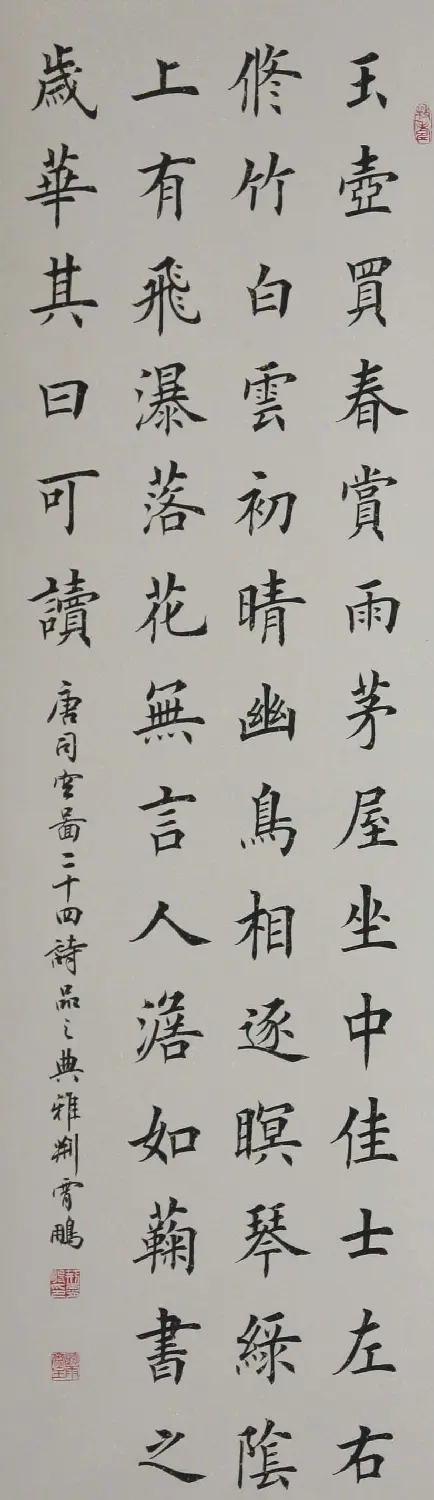 玉壺買春賞雨茅屋坐中佳士左右
修竹白雲初晴幽鳥相逐瞑琴綠陰
上有飛瀑落花無言人澹如蘜書之
歲華其曰可讀
唐司空啚二十四詩品之典雅荆霄鵬